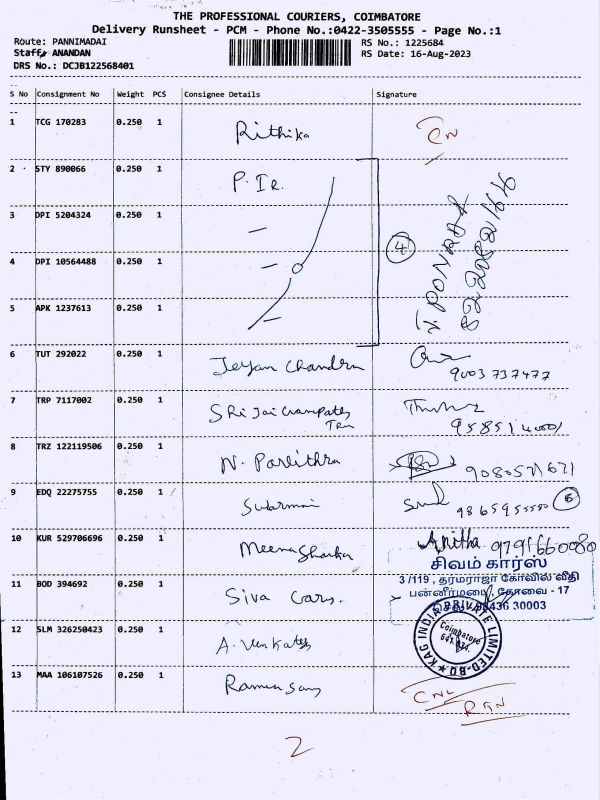 THE PROFESSIONAL COURIERS, COIMBATORE
Delivery Runsheet - PCM - Phone No.:0422-3505555 - Page No.:1
Route: PANNIMADAI RS No.: 1225684
Staff: ANANDAN RS Date: 16-Aug-2023
DRS No.: DCJB122568401
S No Consignment No Weight PCS Consignee Details Signature
1 TCG 170283 0.250 1 Rithika
2 STY 890066 0.250 1 P. IR.
3 DPI 5204324 0.250 1
4 DPI 10564488 0.250 1 4
5 APK 1237613 0.250 1
6 TUT 292022 0.250 1 Jeyan Chandra
9003737477
7 TRP 7117002 0.250 1 SRi Jai
8 TRZ 122119506 0.250 1 N. Pavithra 9080571671
9 EDQ 22275755 0.250 1
10 KUR 529706696 0.250 1 Meena Anitha 9791660080
சிவம் கார்ஸ்
3/119, தர்மராஜா கோவில் வீதி
பன்னீர்மடை, கோவை - 17
11 BOD 394692 0.250 1 Siva Cars.
12 SLM 326250423 0.250 1 A. Venkatesh
KAG INDIA PRIVATE LIMITED
Coimbatore
13 MAA 106107526 0.250 1
CNL
2